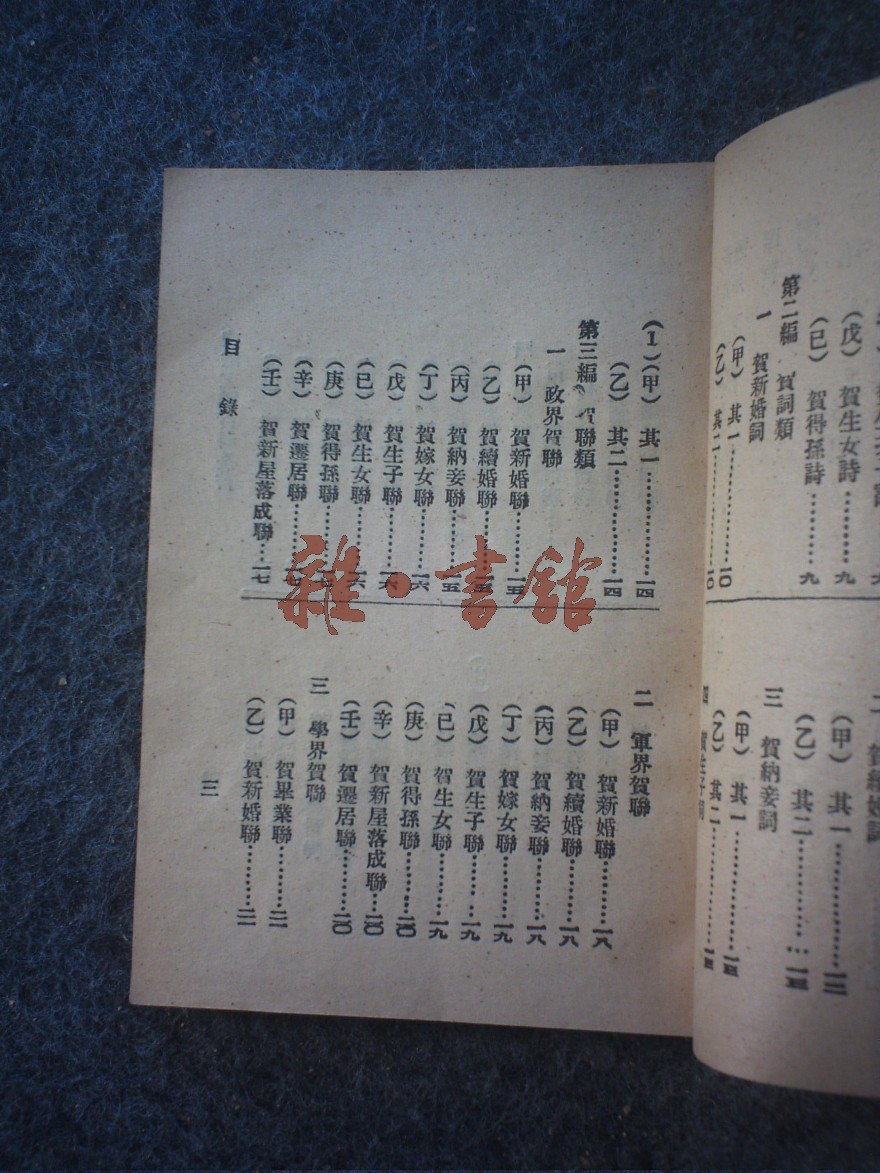 (戊) 賀生女詩………九
(已) 賀得孫詩………九
第二編 賀詞類
一 賀新婚詞
(甲) 其一…………一〇
(乙) 其二…………一〇
二 賀續婚詞
(甲) 其一…………一二
(乙) 其二…………一三
三 賀納妾詞
(甲) 其一…………一三
(乙) 其二…………一三
四 賀生子詞
(1)(甲) 其一…………一四
(乙) 其二…………一四
第三編 賀聯類
一 政界賀聯
(甲) 賀新婚聯………一五
(乙) 賀續婚聯………一五
(丙) 賀納妾聯………一五
(丁) 賀嫁女聯………一六
(戊) 賀生子聯………一六
(已) 賀生女聯………一六
(庚) 賀得孫聯………
(辛) 賀遷居聯………
(壬) 賀新屋落成聯…一七
二 軍界賀聯
(甲) 賀新婚聯………一八
(乙) 賀續婚聯………一八
(丙) 賀納妾聯………一八
(丁) 賀嫁女聯………一九
(戊) 賀生子聯………一九
(已) 賀生女聯………一九
(庚) 賀得孫聯………二〇
(辛) 賀新屋落成聯…二〇
(壬) 賀遷居聯………二〇
三 學界賀聯
(甲) 賀畢業聯………二一
(乙) 賀新婚聯………二一
目錄
三
雜·書館